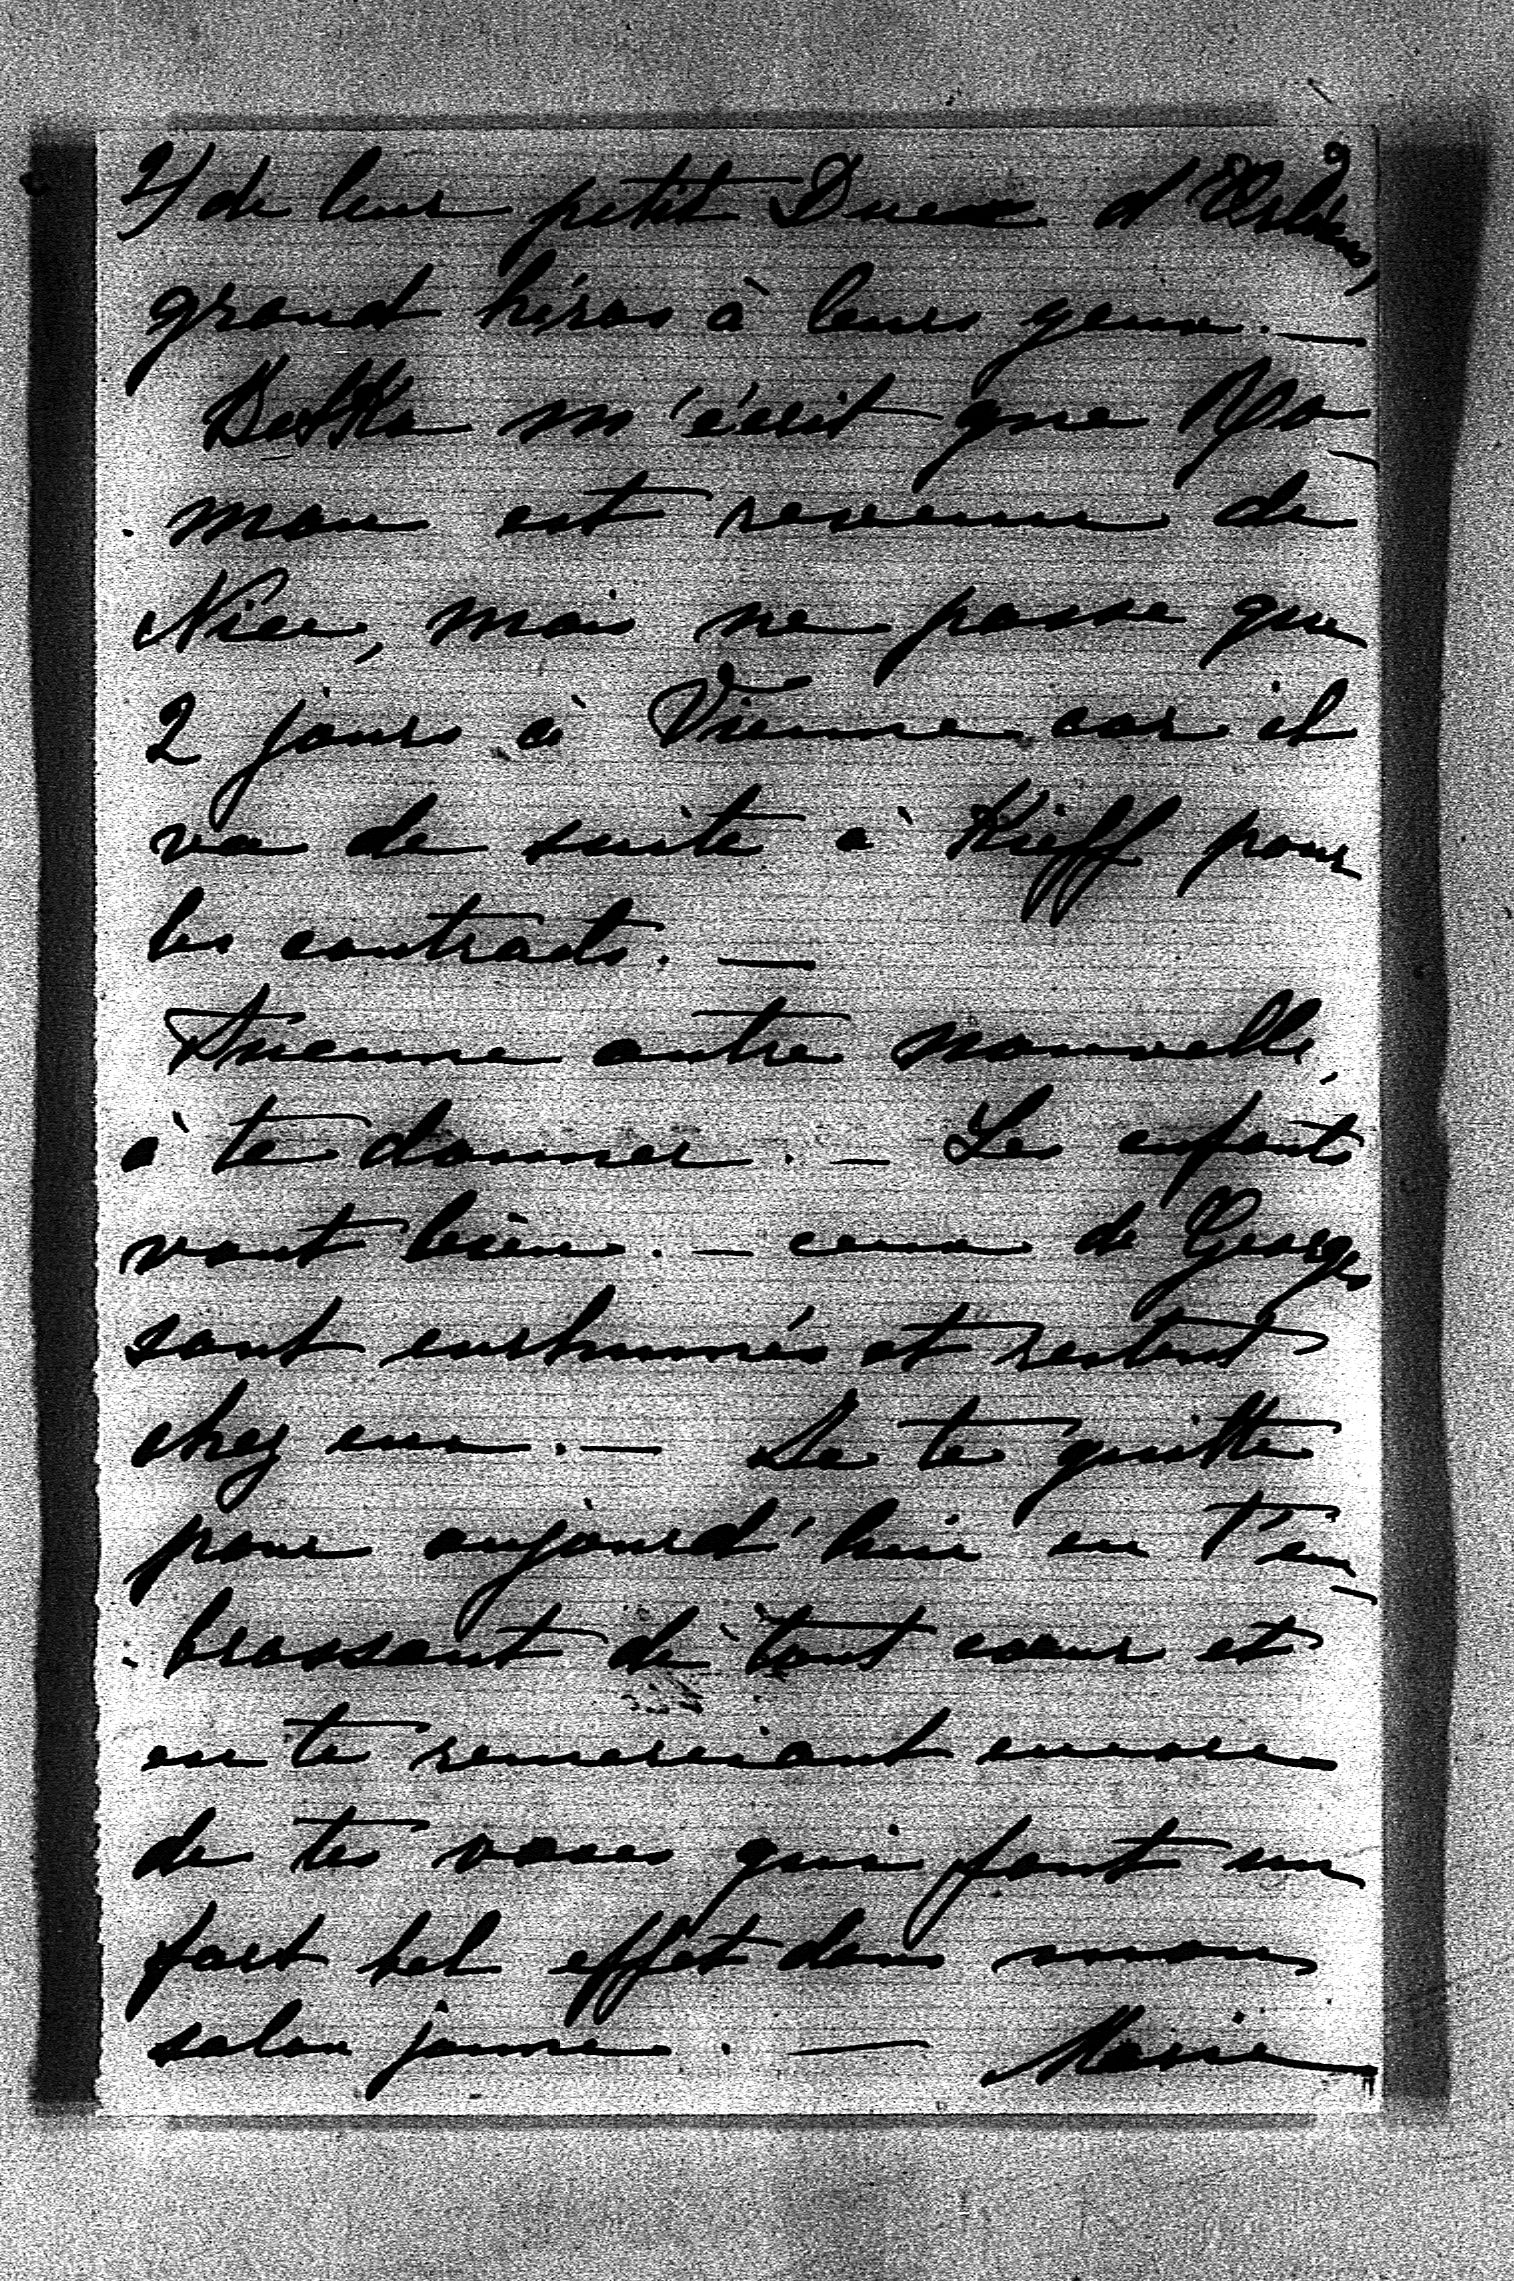 2/ de leur petit Duc d'Orléans,
grand héros à leurs yeux. —
Betka m'écrit que Ro-
man est revenu de
Nice, mais ne passe que
2 jours à Vienne car il
va de suite à Kieff pour
les contracts. —
Aucune autre nouvelle
à te donner. — Les enfants
vont bien. — ceux de Georges
sont enrhumés et restent
chez eux. — Je te quitte
pour aujourd'hui en t'em-
brassant de tout cœur et
en te remerciant encore
de tes vases qui font un
fort bel effet dans mon
salon jaune. — Marie